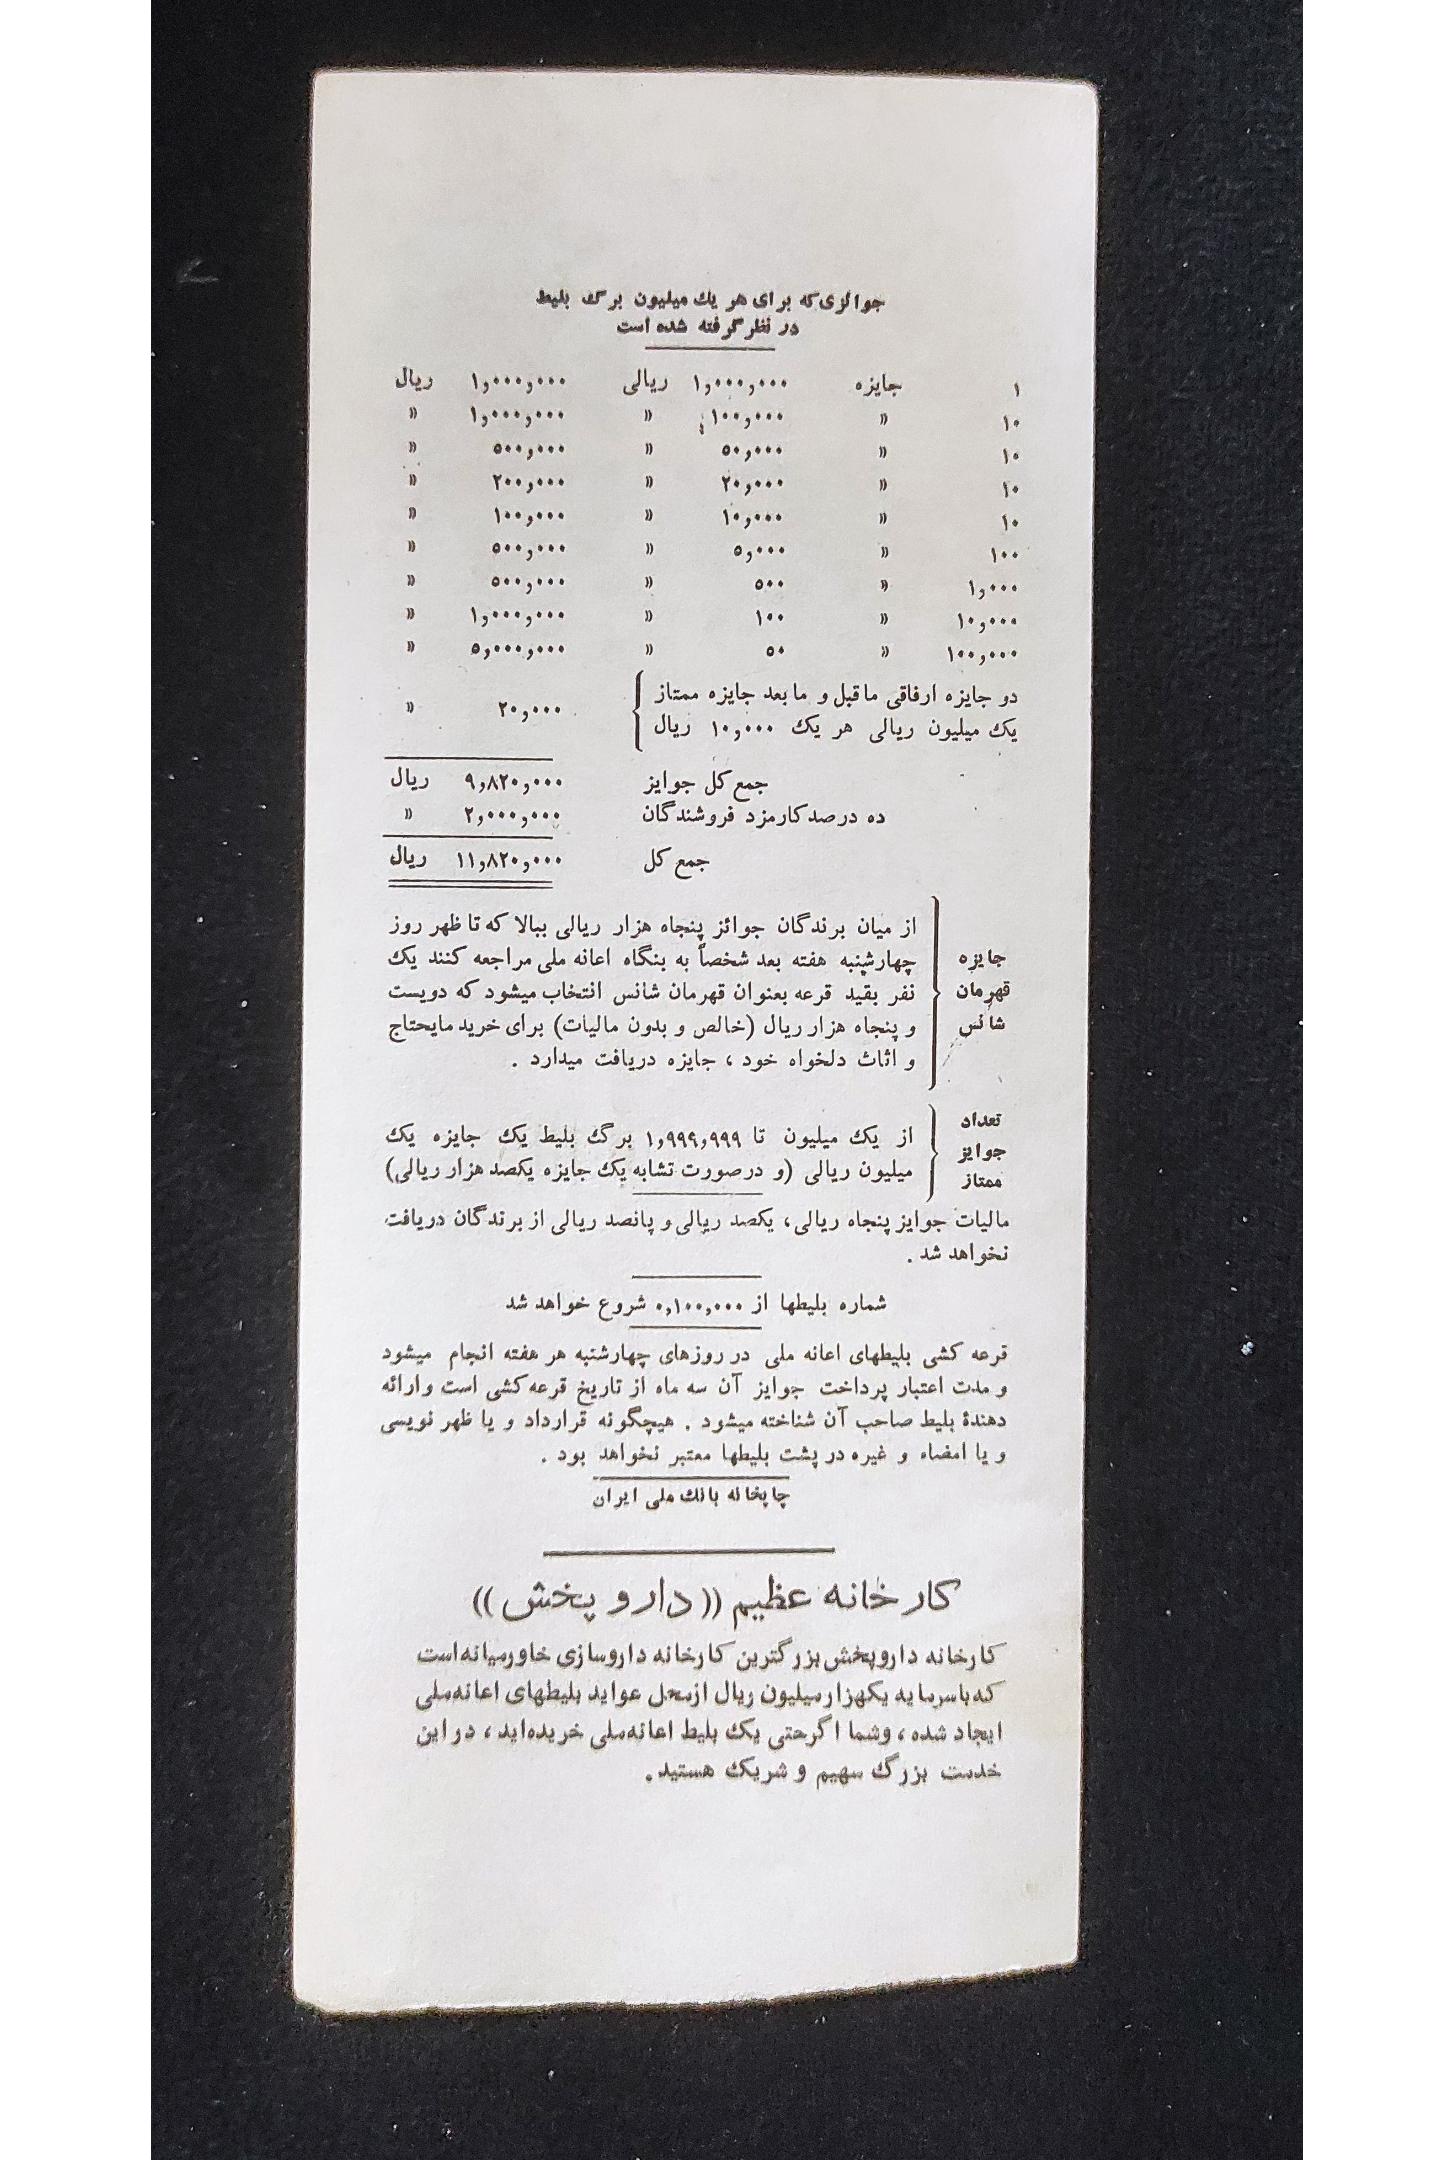 جوائزی که برای هر یک میلیون برگ بلیط
در نظر گرفته شده است
۱ جایزه ۱,۰۰۰,۰۰۰ ریالی ۱,۰۰۰,۰۰۰ ریال
۱۰ » ۱۰۰,۰۰۰ » ۱,۰۰۰,۰۰۰ »
۱۰ » ۵۰,۰۰۰ » ۵۰۰,۰۰۰ »
۱۰ » ۲۰,۰۰۰ » ۲۰۰,۰۰۰ »
۱۰ » ۱۰,۰۰۰ » ۱۰۰,۰۰۰ »
۱۰۰ » ۵,۰۰۰ » ۵۰۰,۰۰۰ »
۱,۰۰۰ » ۵۰۰ » ۵۰۰,۰۰۰ »
۱۰,۰۰۰ » ۱۰۰ » ۱,۰۰۰,۰۰۰ »
۱۰۰,۰۰۰ » ۵۰ » ۵,۰۰۰,۰۰۰ »
دو جایزه ارفاقی ماقبل و مابعد جایزه ممتاز
یک میلیون ریالی هر یک ۱۰,۰۰۰ ریال
۲۰,۰۰۰ »
جمع کل جوایز ۹,۸۲۰,۰۰۰ ریال
ده درصد کارمزد فروشندگان ۲,۰۰۰,۰۰۰ »
جمع کل ۱۱,۸۲۰,۰۰۰ ریال
جایزه
قهرمان
شانس
از میان برندگان جوائز پنجاه هزار ریالی ببالا که تا ظهر روز
چهارشنبه هفته بعد شخصاً به بنگاه اعانه ملی مراجعه کنند یک
نفر بقید قرعه بعنوان قهرمان شانس انتخاب میشود که دویست
و پنجاه هزار ریال (خالص و بدون مالیات) برای خرید مایحتاج
و اثاث دلخواه خود ، جایزه دریافت میدارد .
تعداد
جوایز
ممتاز
از یک میلیون تا ۱,۹۹۹,۹۹۹ برگ بلیط یک جایزه یک
میلیون ریالی (و درصورت تشابه یک جایزه یکصد هزار ریالی)
مالیات جوایز پنجاه ریالی، یکصد ریالی و پانصد ریالی از برندگان دریافت
نخواهد شد .
شماره بلیطها از ۰,۱۰۰,۰۰۰ شروع خواهد شد
قرعه کشی بلیطهای اعانه ملی در روزهای چهارشنبه هر هفته انجام میشود
و مدت اعتبار پرداخت جوایز آن سه ماه از تاریخ قرعه کشی است و ارائه
دهندهٔ بلیط صاحب آن شناخته میشود . هیچگونه قرارداد و یا ظهر نویسی
و یا امضاء و غیره در پشت بلیطها معتبر نخواهد بود .
چاپخانه بانک ملی ایران
کارخانه عظیم ((دارو پخش))
کارخانه داروپخش بزرگترین کارخانه داروسازی خاورمیانه است
که با سرمایه یکهزار میلیون ریال از محل عواید بلیطهای اعانه ملی
ایجاد شده ، و شما اگر حتی یک بلیط اعانه ملی خریده‌اید ، در این
خدمت بزرگ سهیم و شریک هستید .